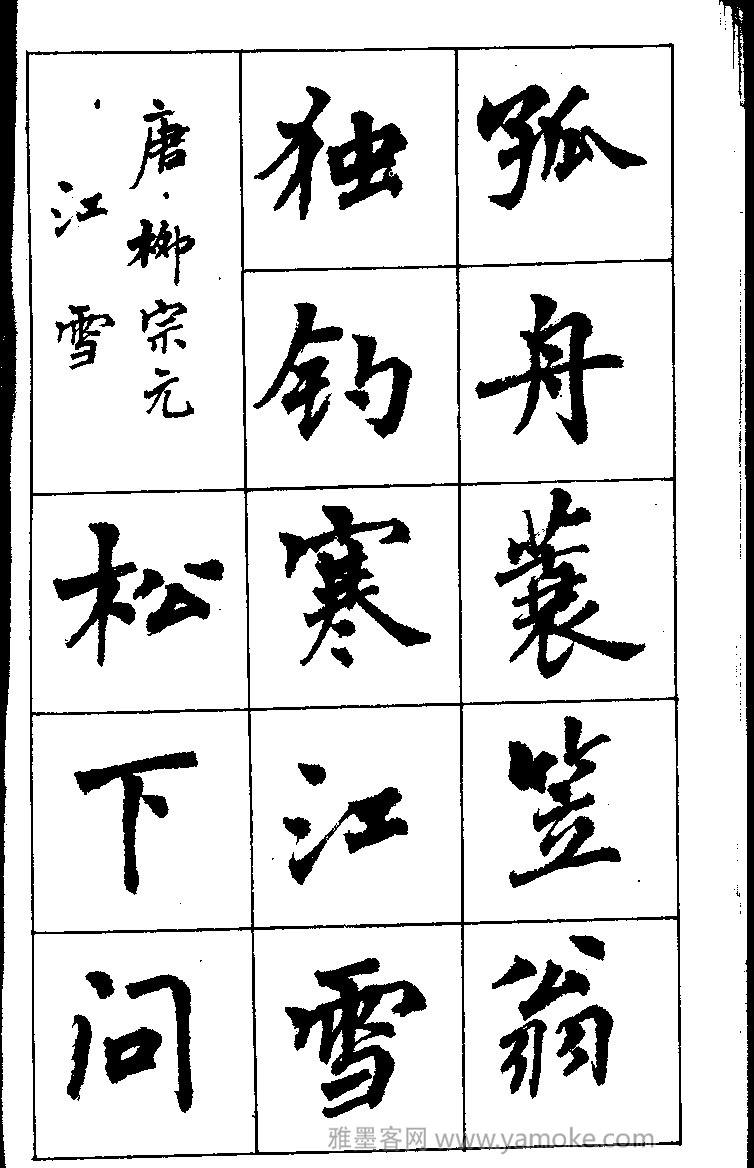 孤舟蓑笠翁
独钓寒江雪
唐·柳宗元
·江雪
松下问
雅墨客网 www.yamoke.com